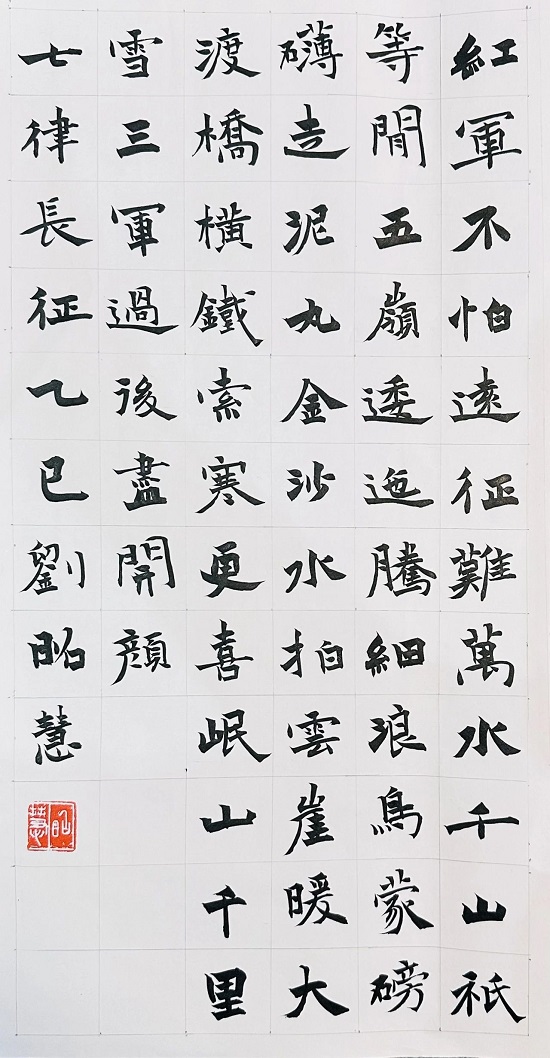 紅軍不怕遠征難萬水千山祇
等間五嶺逶迤騰細浪鳥蒙磅
礴走泥丸金沙水拍雲崖暖大
渡橋橫鐵索寒更喜岷山千里
雪三軍過後盡開顏
七律長征乙巳劉昭慧
昭慧